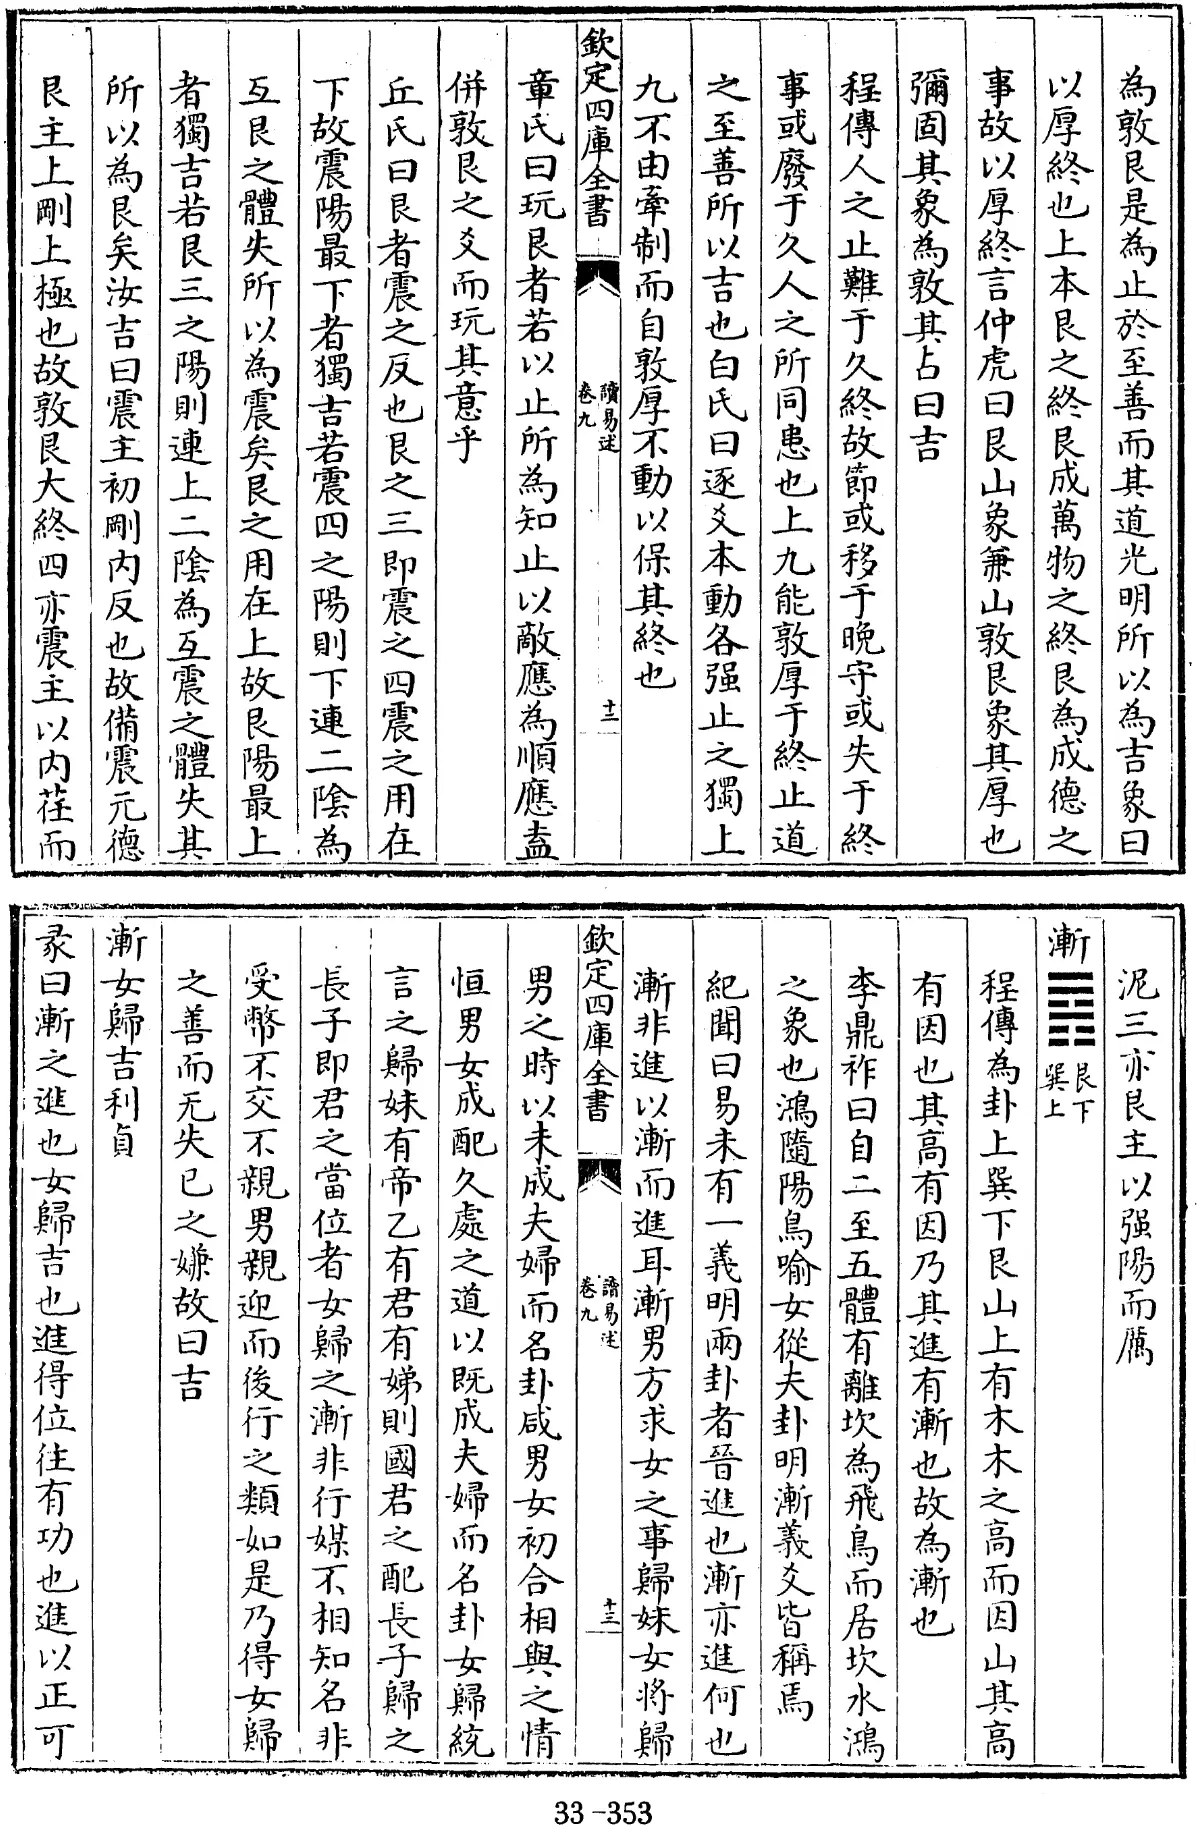 為敦艮是為止於至善而其道光明所以為吉象曰
以厚終也上本艮之終艮成萬物之終艮為成德之
事故以厚終言仲虎曰艮山象兼山敦艮象其厚也
彌固其象為敦其占曰吉
程傳人之止難于久終故節或移于晚守或失于終
事或廢于久人之所同患也上九能敦厚于終止道
之至善所以吉也白氏曰逐爻本動各强止之獨上
九不由牽制而自敦厚不動以保其終也
欽定四庫全書
讀易述
卷九
十二
章氏曰玩艮者若以止所為知止以敵應為順應盍
併敦艮之爻而玩其意乎
丘氏曰艮者震之反也艮之三即震之四震之用在
下故震陽最下者獨吉若震四之陽則下連二陰為
互艮之體失所以為震矣艮之用在上故艮陽最上
者獨吉若艮三之陽則連上二陰為互震之體失其
所以為艮矣汝吉曰震主初剛内反也故備震元德
艮主上剛上極也故敦艮大終四亦震主以内荏而
泥三亦艮主以强陽而厲
漸䷴艮下
巽上
程傳為卦上巽下艮山上有木木之高而因山其高
有因也其高有因乃其進有漸也故為漸也
李鼎祚曰自二至五體有離坎為飛鳥而居坎水鴻
之象也鴻隨陽鳥喻女從夫卦明漸義爻皆稱焉
紀聞曰易未有一義明兩卦者晉進也漸亦進何也
漸非進以漸而進耳漸男方求女之事歸妹女將歸
欽定四庫全書
讀易述
卷九
十三
男之時以未成夫婦而名卦咸男女初合相與之情
恒男女成配久處之道以既成夫婦而名卦女歸統
言之歸妹有帝乙有君有娣則國君之配長子歸之
長子即君之當位者女歸之漸非行媒不相知名非
受幣不交不親男親迎而後行之類如是乃得女歸
之善而无失已之嫌故曰吉
漸女歸吉利貞
彖曰漸之進也女歸吉也進得位往有功也進以正可
33-353